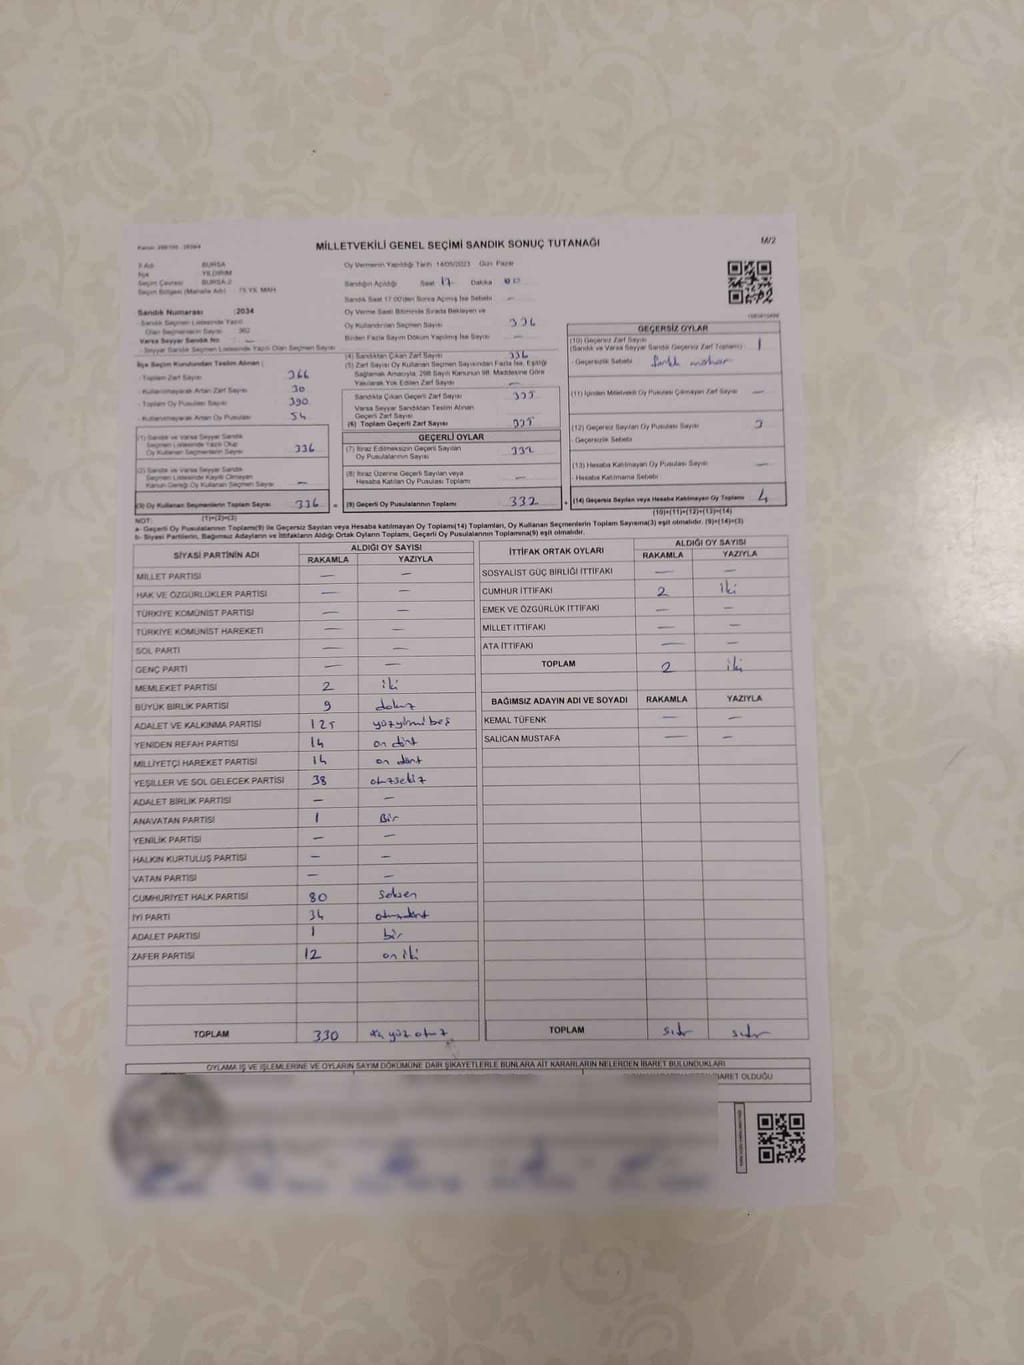 MİLLETVEKİLİ GENEL SEÇİMİ SANDIK SONUÇ TUTANAĞI
M/2
İl Adı : BURSA
İlçe : YILDIRIM
Seçim Çevresi : BURSA-2
Seçim Bölgesi (Mahalle Adı) : 75.YIL MAH.
Sandık Numarası : 2034
Sandık Seçmen Listesinde Yazılı
Olan Seçmenlerin Sayısı : 362
Varsa Seyyar Sandık No : —
Seyyar Sandık Seçmen Listesinde Yazılı Olan Seçmen Sayısı
İlçe Seçim Kurulundan Teslim Alınan ;
Toplam Zarf Sayısı 366
Kullanılmayarak Artan Zarf Sayısı 30
Toplam Oy Pusulası Sayısı 390
Kullanılmayarak Artan Oy Pusulası 54
(1) Sandık ve Varsa Seyyar Sandık
Seçmen Listesinde Yazılı Olup
Oy Kullanan Seçmenlerin Sayısı 336
(2) Sandık ve Varsa Seyyar Sandık
Seçmen Listesinde Kaydı Olmayan
Kanun Gereği Oy Kullanan Seçmen Sayısı —
(3) Oy Kullanan Seçmenlerin Toplam Sayısı 336 =
(1)+(2)=(3)
Oy Vermenin Yapıldığı Tarih 14/05/2023 Gün Pazar
Sandığın Açıldığı Saat 17 Dakika
Sandık Saat 17:00'den Sonra Açılmış İse Sebebi —
Oy Verme Saati Bitiminde Sırada Bekleyen ve
Oy Kullandırılan Seçmen Sayısı 336
Birden Fazla Sayım Döküm Yapılmış İse Sayısı —
(4) Sandıktan Çıkan Zarf Sayısı 336
(5) Zarf Sayısı Oy Kullanan Seçmen Sayısından Fazla İse, Eşitliği
Sağlamak Amacıyla, 298 Sayılı Kanunun 98. Maddesine Göre
Yakılarak Yok Edilen Zarf Sayısı —
Sandıkta Çıkan Geçerli Zarf Sayısı 335
Varsa Seyyar Sandıktan Teslim Alınan
Geçerli Zarf Sayısı
(6) Toplam Geçerli Zarf Sayısı 335
GEÇERLİ OYLAR
(7) İtiraz Edilmeksizin Geçerli Sayılan
Oy Pusulalarının Sayısı 332
(8) İtiraz Üzerine Geçerli Sayılan veya
Hesaba Katılan Oy Pusulası Sayısı —
(9) Geçerli Oy Pusulalarının Toplamı 332 +
GEÇERSİZ OYLAR
(10) Geçersiz Zarf Sayısı
(Sandık ve Varsa Seyyar Sandık Geçersiz Zarf Toplamı) 1
Geçersizlik Sebebi
(11) İçinden Milletvekili Oy Pusulası Çıkmayan Zarf Sayısı —
(12) Geçersiz Sayılan Oy Pusulası Sayısı 3
Geçersizlik Sebebi
(13) Hesaba Katılmayan Oy Pusulası Sayısı —
Hesaba Katılmama Sebebi
(14) Geçersiz Sayılan veya Hesaba Katılmayan Oy Toplamı 4
(10)+(11)+(12)+(13)=(14)
NOT:
a- Geçerli Oy Pusulalarının Toplamı(9) ile Geçersiz Sayılan veya Hesaba katılmayan Oy Toplamı(14) Toplamları, Oy Kullanan Seçmenlerin Toplam Sayısına(3) eşit olmalıdır. (9)+(14)=(3)
b- Siyasi Partilerin, Bağımsız Adayların ve İttifakların Aldığı Ortak Oyların Toplamı, Geçerli Oy Pusulalarının Toplamına(9) eşit olmalıdır.
SİYASİ PARTİNİN ADI ALDIĞI OY SAYISI
RAKAMLA YAZIYLA
MİLLET PARTİSİ — —
HAK VE ÖZGÜRLÜKLER PARTİSİ — —
TÜRKİYE KOMÜNİST PARTİSİ — —
TÜRKİYE KOMÜNİST HAREKETİ — —
SOL PARTİ — —
GENÇ PARTİ — —
MEMLEKET PARTİSİ 2 iki
BÜYÜK BİRLİK PARTİSİ 9 dokuz
ADALET VE KALKINMA PARTİSİ 125 yüzyirmibeş
YENİDEN REFAH PARTİSİ 14 on dört
MİLLİYETÇİ HAREKET PARTİSİ 14 on dört
YEŞİLLER VE SOL GELECEK PARTİSİ 38 otuzsekiz
ADALET BİRLİK PARTİSİ — —
ANAVATAN PARTİSİ 1 Bir
YENİLİK PARTİSİ — —
HALKIN KURTULUŞ PARTİSİ — —
VATAN PARTİSİ — —
CUMHURİYET HALK PARTİSİ 80 Seksen
İYİ PARTİ 34 otuzdört
ADALET PARTİSİ 1 bir
ZAFER PARTİSİ 12 on iki
TOPLAM 330 üç yüz otuz
İTTİFAK ORTAK OYLARI ALDIĞI OY SAYISI
RAKAMLA YAZIYLA
SOSYALİST GÜÇ BİRLİĞİ İTTİFAKI — —
CUMHUR İTTİFAKI 2 iki
EMEK VE ÖZGÜRLÜK İTTİFAKI — —
MİLLET İTTİFAKI — —
ATA İTTİFAKI — —
TOPLAM 2 iki
BAĞIMSIZ ADAYIN ADI VE SOYADI RAKAMLA YAZIYLA
KEMAL TÜFENK — —
SALİCAN MUSTAFA — —
TOPLAM sıfır sıfır
OYLAMA İŞ VE İŞLEMLERİNE VE OYLARIN SAYIM DÖKÜMÜNE DAİR ŞİKAYETLERLE BUNLARA AİT KARARLARIN NELERDEN İBARET BULUNDUKLARI
İBARET OLDUĞU